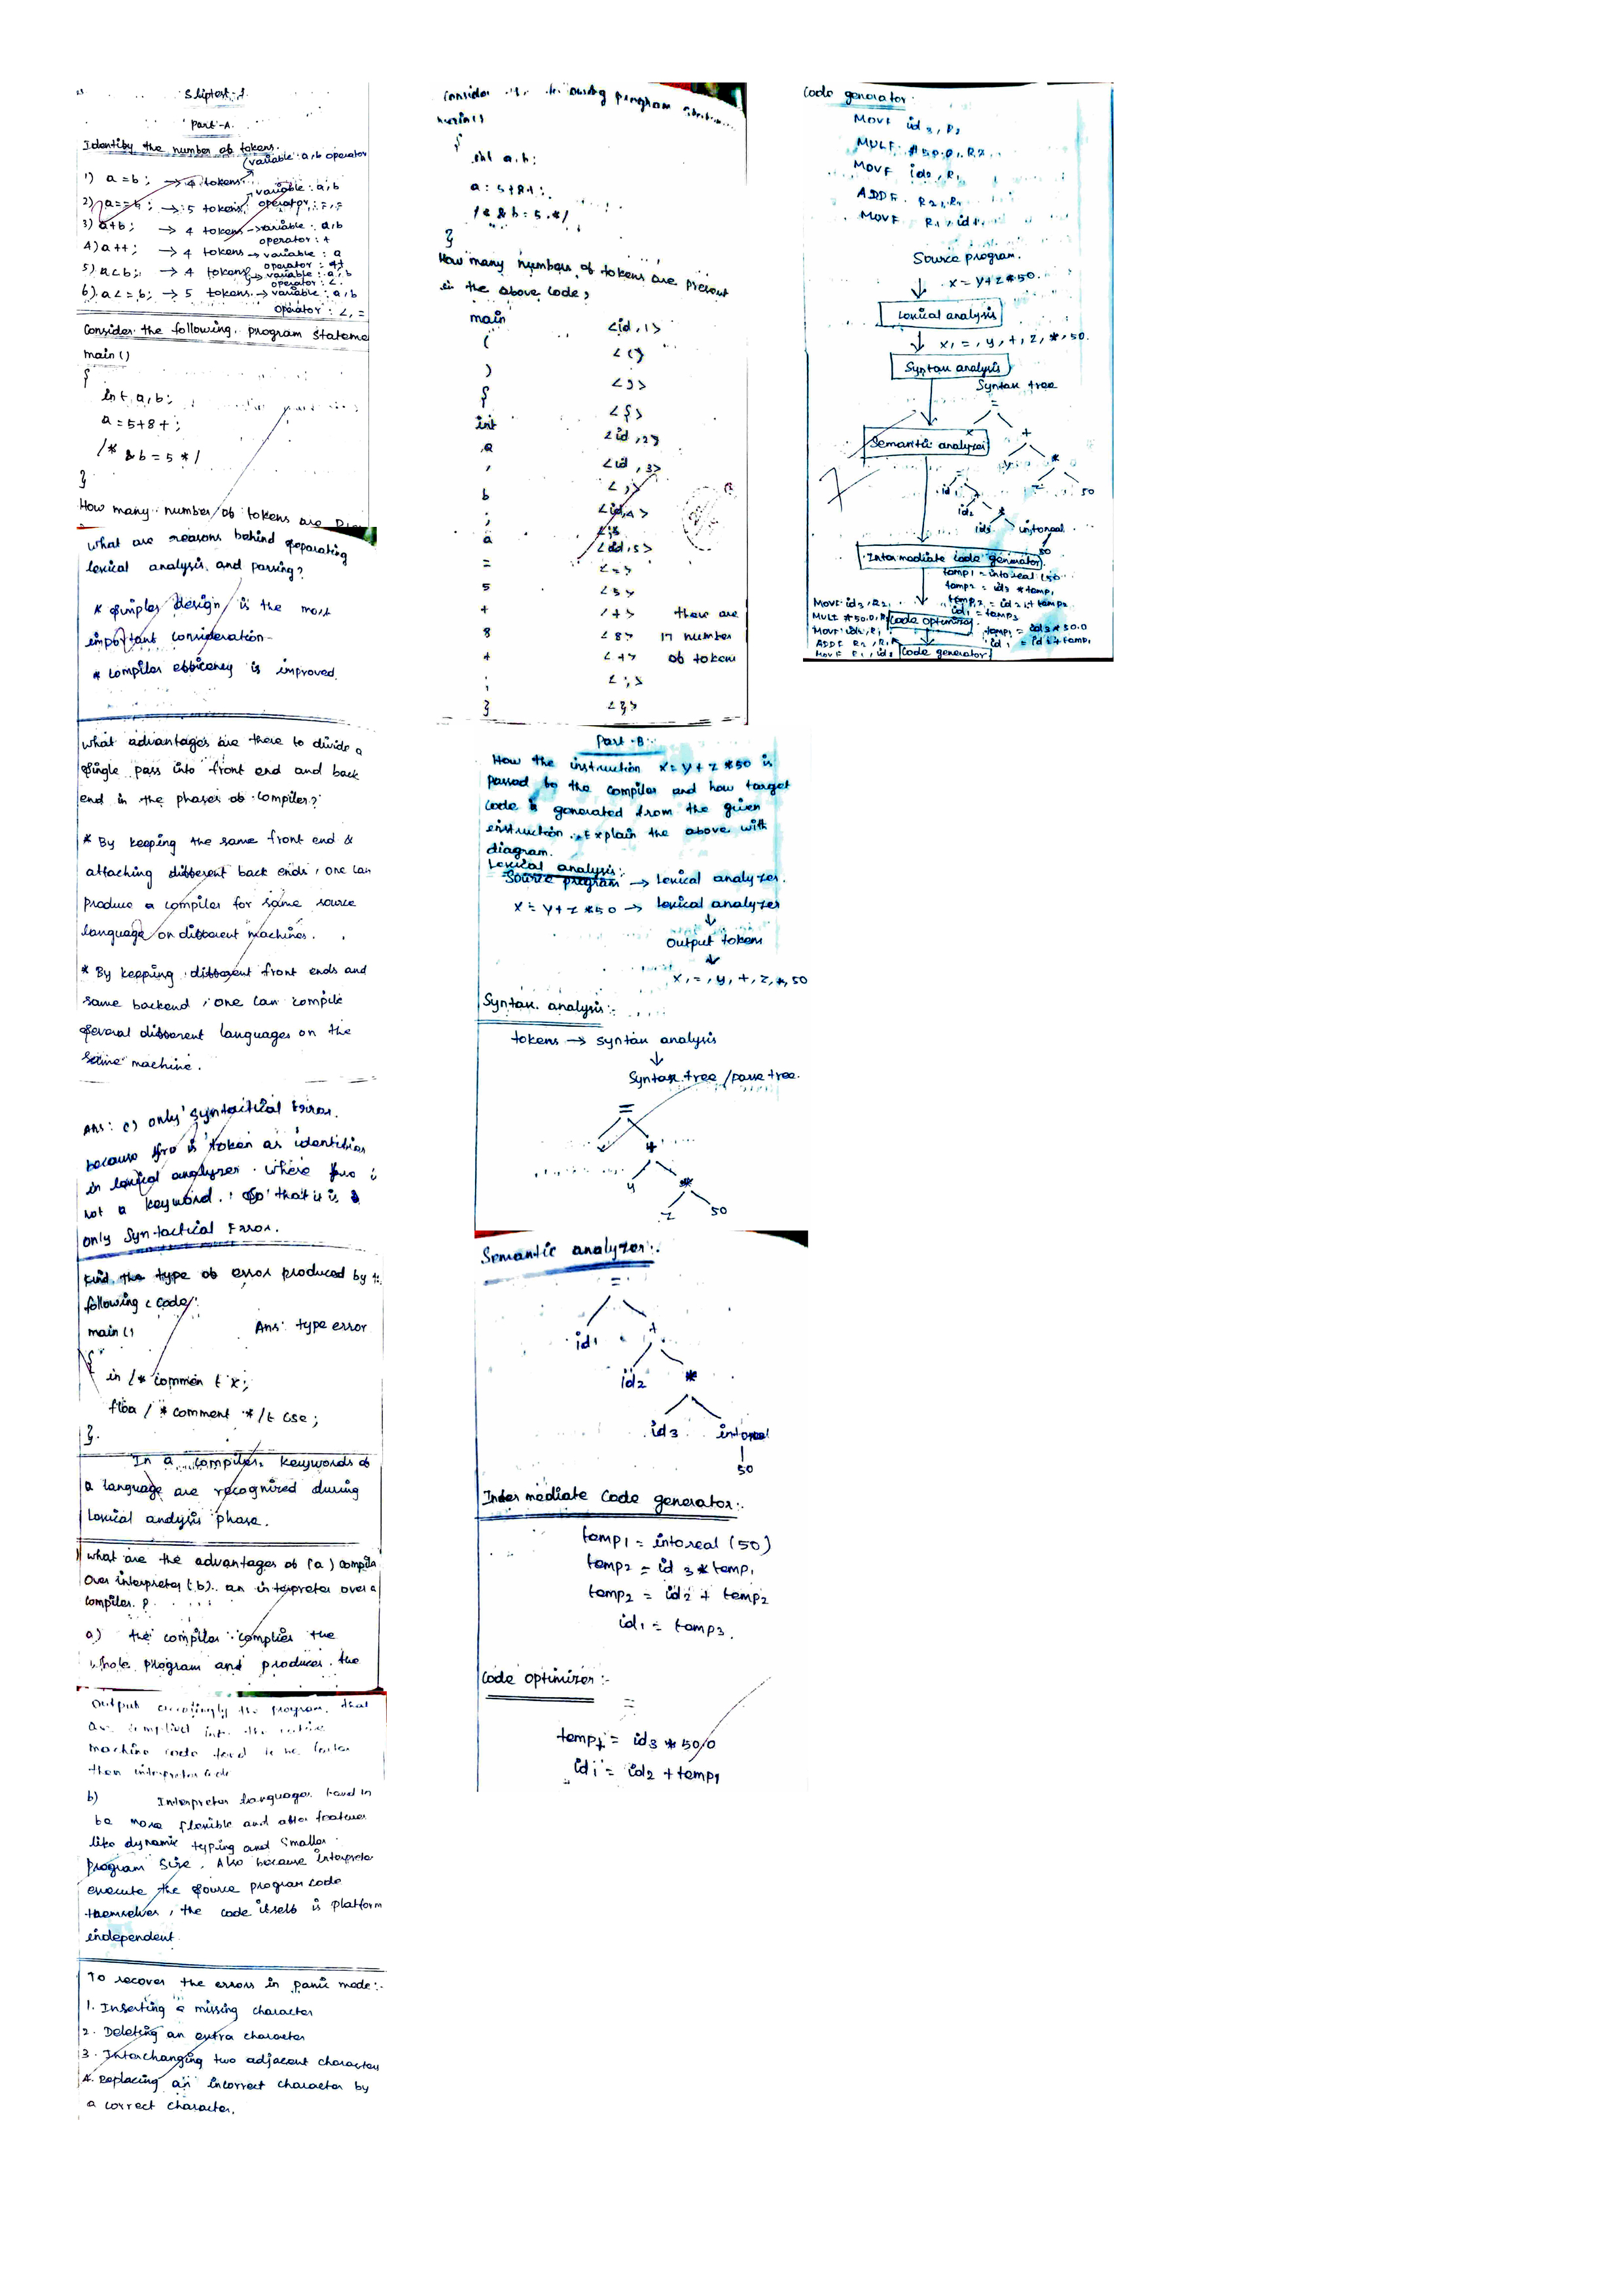 Sliptest-1
Part-A.
Identify the number of tokens.
(variable: a,b operator
1) a=b; → 4 tokens
variable: a,b
2) a==b; → 5 tokens; operator: =,=
3) a+b; → 4 tokens → variable: a,b
operator: +
4) a++; → 4 tokens → variable: a
operator: ++
5) a<b; → 4 tokens → variable: a,b
operator: <.
6). a<=b; → 5 tokens → variable: a,b
operator: <, =
Consider the following program stateme
main()
{
int a,b;
a=5+8+;
/* &b=5 */
}
How many number of tokens are
What are reasons behind separating
lexical analysis and parsing?
* Simpler design is the most
important consideration-
* Compiler efficency is improved.
What advantages are there to divide a
single pass into front end and back
end in the phases of compiler?
* By keeping the same front end &
attaching different back ends, one can
produce a compiler for same source
language on different machines.
* By keeping different front ends and
same backend, one can compile
several different languages on the
same machine.
Ans: c) only Syntactical Error.
because fro is token as identifier
in lexical analyzer. Where fro i
not a keyword. So that it is
only Syntactical Error.
Find the type of error produced by
following c code:
main() Ans: type error
{
in /* common t x;
floa /* comment */t cse;
}.
In a compiler, keywords of
a language are recognized during
Lexical analysis phase.
what are the advantages of (a) compile
Over interpreter (b). an interpreter over a
compiler?
a) the compiler complies the
whole program and produces the
Output accordingly the program, that
machine code tend to be faster
then interpreter code
b) Interpreter languages tend to
be more flexible and offer features
like dynamic typing and smaller
program size. Also because interprete
execute the source program code
themselves, the code itself is platform
independent.
To recover the errors in panic mode:-
1. Inserting a missing character
2. Deleting an extra character
3. Interchanging two adjacent characters
4. Replacing an incorrect character by
a correct character.
Consider the following program
main()
{
int a,b;
a=5+8+;
/* &b=5 */
}
How many numbers of tokens are present
in the above code;
main <id,1>
( <(>
) <)>
{ <{>
int <id,2>
a <id,3>
, <,>
b <id,4>
; <;>
a <id,5>
= <=>
5 <5>
+ <+> there are
8 <8> 17 number
+ <+> of token
; <;>
} <}>
Part-B:-
How the instruction x=y+z*50 is
passed to the compiler and how target
code is generated from the given
instruction. Explain the above with
diagram.
Lexical analysis:-
Source program → Lexical analyzer.
x=y+z*50 → Lexical analyzer
↓
Output token
↓
x,=,y,+,z,*,50
Syntax analysis:-
tokens → syntax analysis
↓
Syntax tree/parse tree.
=
+
y *
z 50
Semantic analyzer:-
=
id1 +
id2 *
id3 intoreal
50
Inder mediate Code generator:-
temp1 = intoreal (50)
temp2 = id3 * temp1
temp2 = id2 + temp2
id1 = temp3.
Code optimizer:-
=
temp1 = id3 * 50.0
id1 = id2 + temp1
Code generator:
MOVF id3, R2
MULF #50.0, R2
MOVF id2, R1
ADDF R2, R1
MOVF R1, id1.
Source program.
↓ x=y+z*50.
Lexical analysis
↓ x,=,y,+,z,*,50.
Syntax analysis
Syntax tree
=
x +
Semantic analyzer
y *
z 50
id1 +
id2 *
id3 intoreal
50
Intermediate code generator.
temp1 = intoreal (50
temp2 = id3 * temp1
temp2 = id2 + temp2
id1 = temp3
MOVF id3, R2
MULF #50.0, R2 Code optimizer. temp1 = id3 * 50.0
MOVF id2, R1 id1 = id2 + temp1
ADDF R2, R1
MOVF R1, id1 Code generator